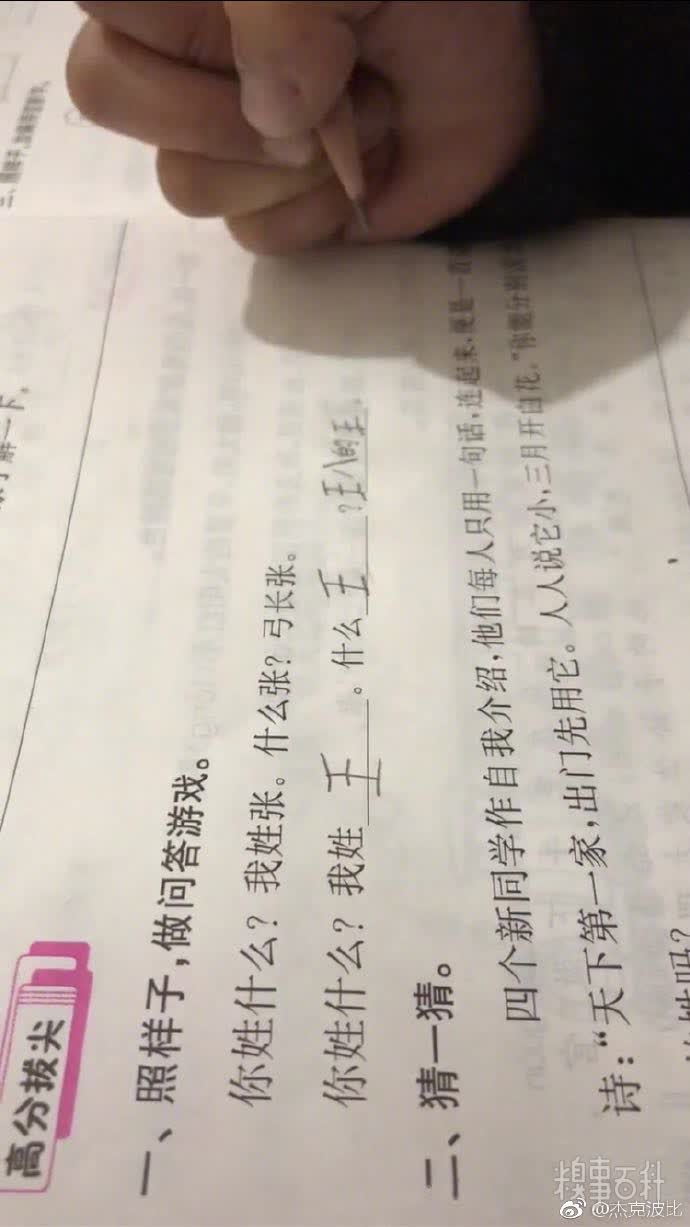 高分拔尖
一、照样子,做问答游戏。
你姓什么?我姓张。什么张?弓长张。
你姓什么?我姓王。什么王?王八的王。
二、猜一猜。
四个新同学作自我介绍,他们每人只用一句话,连起来,便是一首
诗:“天下第一家,出门先用它。人人说它小,三月开白花。”你能分别
姓吗?
糗事百科
@杰克波比